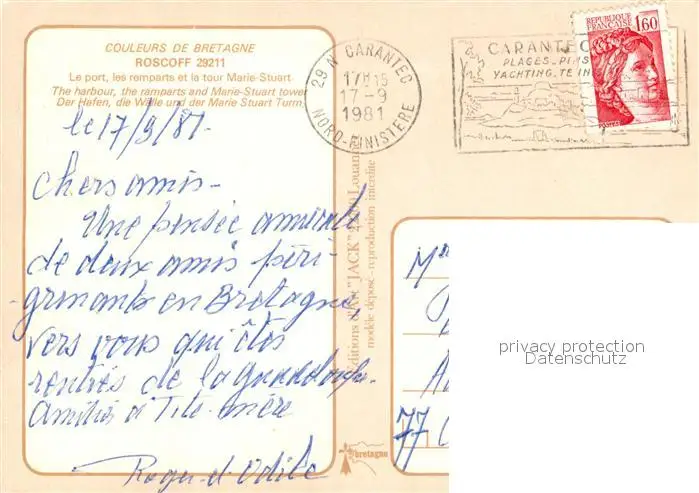 COULEURS DE BRETAGNE
ROSCOFF 29211
Le port, les remparts et la tour Marie-Stuart
The harbour, the ramparts and Marie-Stuart tower
Der Hafen, die Wälle und der Marie Stuart Turm
le 17/9/81.
Chers amis -
Une pensée amicale
de deux amis péri-
grinants en Bretagne,
vers vous qui êtes
rentrés de la
Amitiés à Tite-mère
Roger et Odile
29 N CARANTEC
17H15
17-9
1981
NORD-FINISTERE
CARANTEC
PLAGES_PINS
YACHTING_TEN
REPUBLIQUE
FRANÇAISE
1,60
POSTES
Editions d'Art "JACK"
modèle déposé - reproduction interdite
bretagne
77
privacy protection
Datenschutz